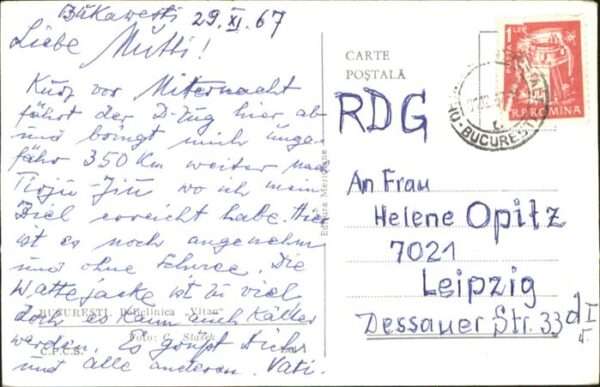 Bukarest, 29.XI.67
Liebe Mutti!
Kurz vor Mitternacht
fährt der D-Zug hier ab
und bringt mich unge-
fähr 350 Km weiter nach
wo ich mein
Ziel erreicht habe. Hier
ist es noch angenehm
und ohne Schnee. Die
Wattejacke ist zu viel
doch es kann auch kälter
werden. Es grüßt Dich
und alle anderen. Vati.
BUCUREŞTI. Policlinica „Vitan"
Foto: G.
C.P.C.S.
CARTE
POŞTALĂ
POSTA 1 LEU
R.P. ROMINA
BUCUREŞTI
RDG
An Frau
Helene Opitz
7021
Leipzig
Dessauer Str. 33 d I
Editura Meridiane